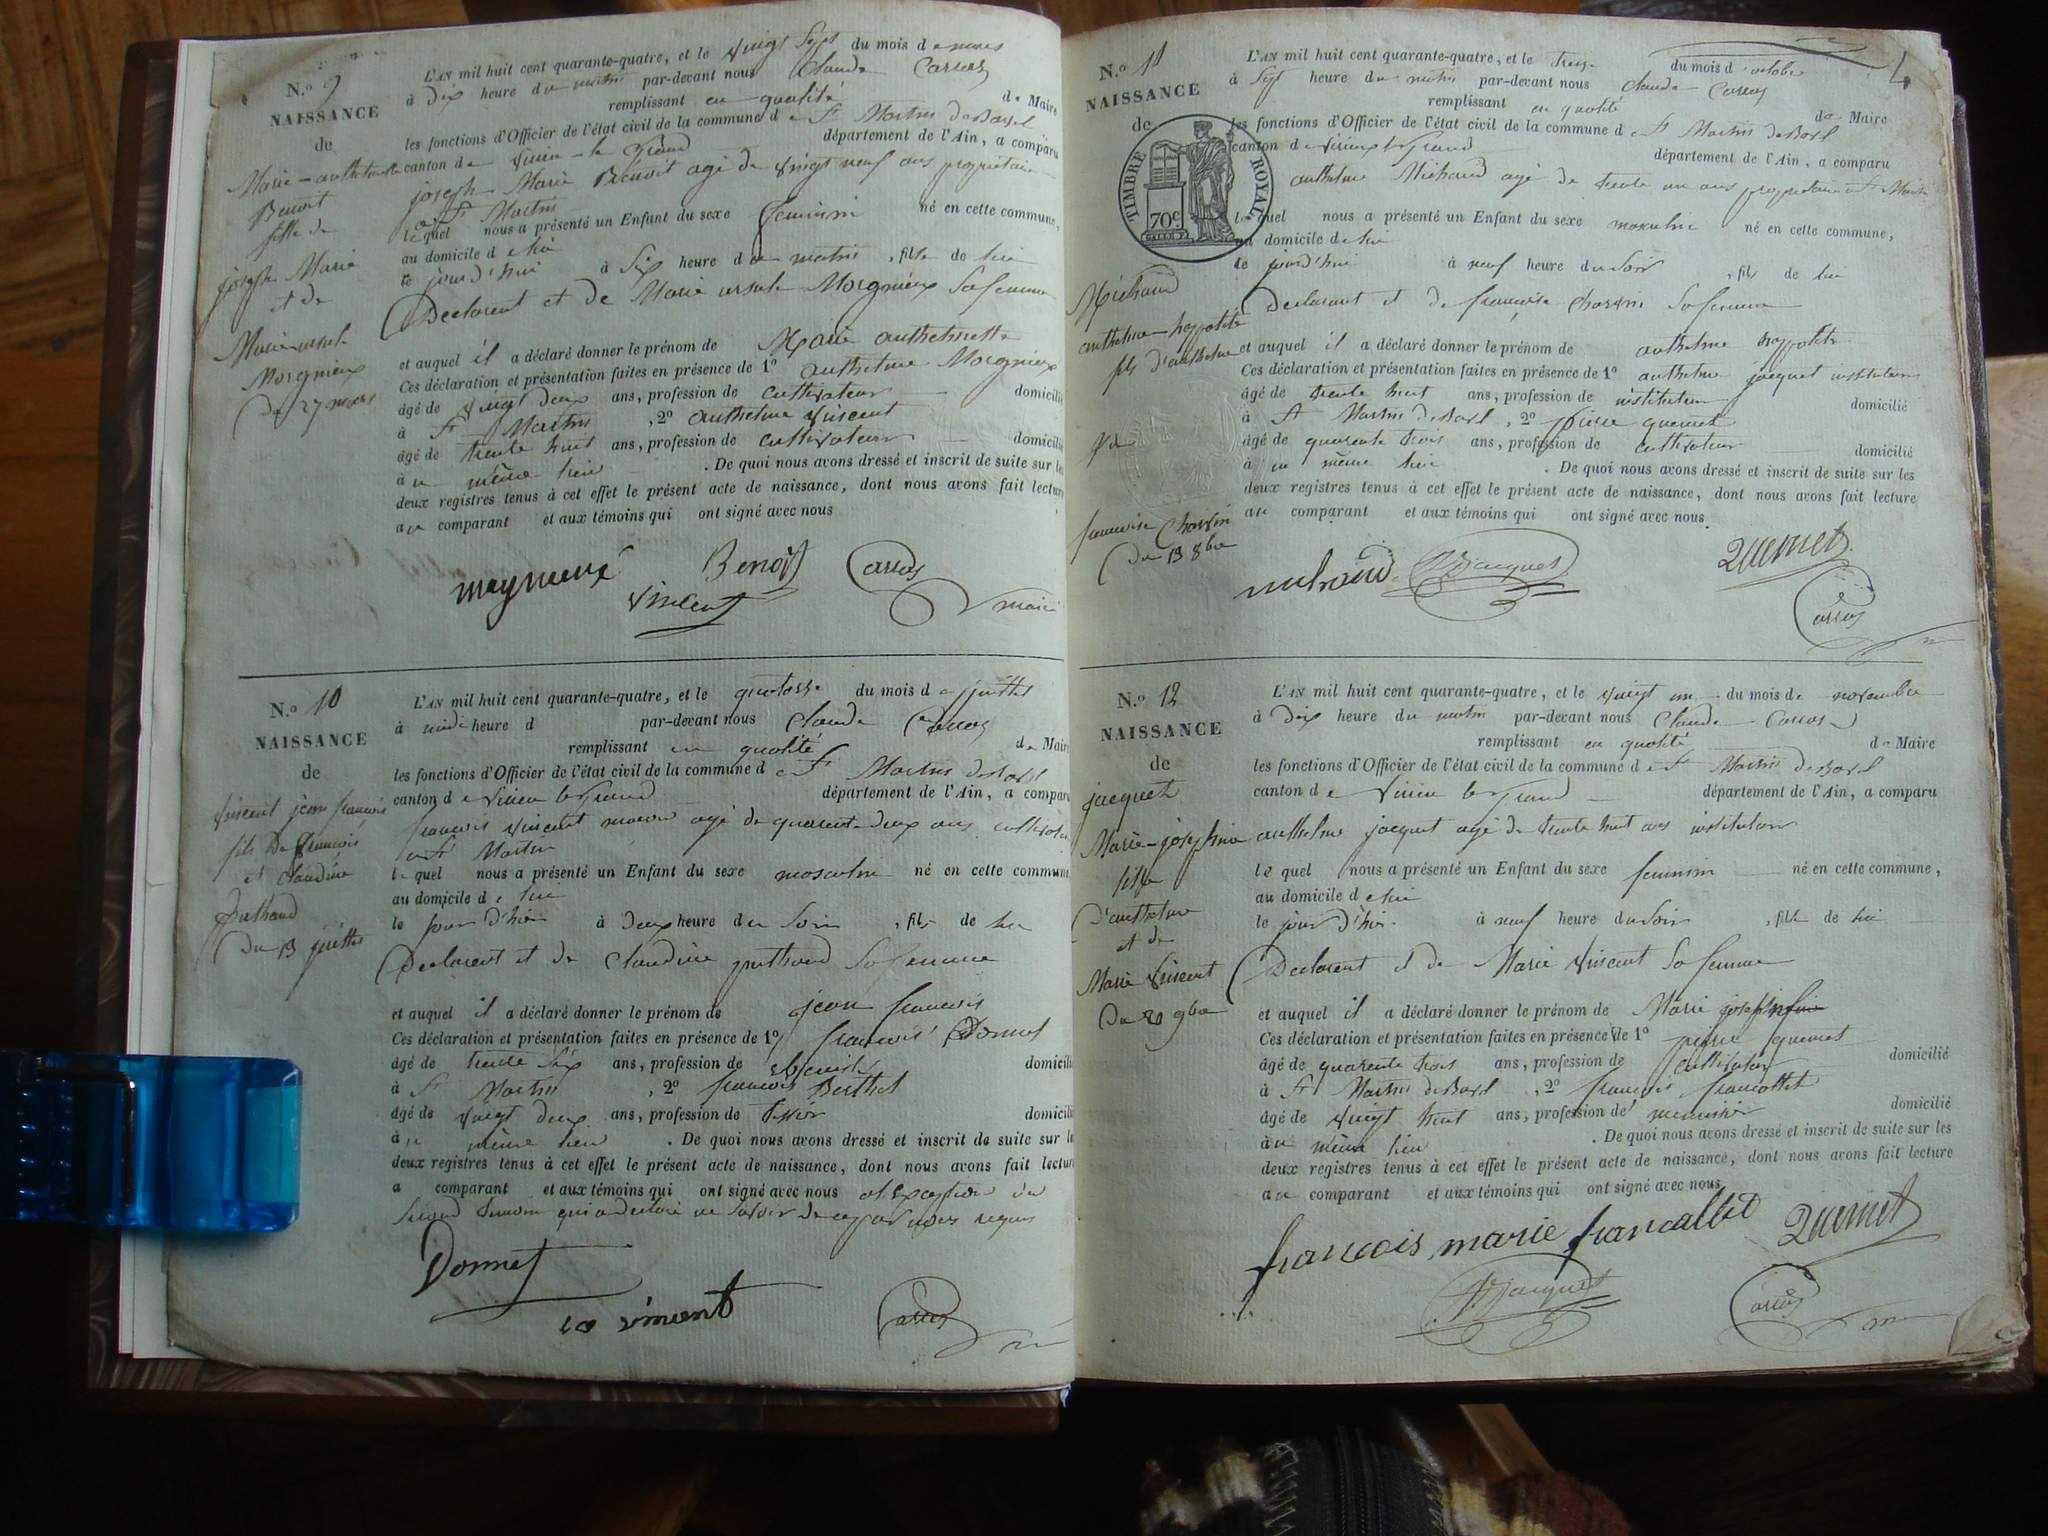 N.o 9
NAISSANCE
de
Marie-anthelmette
Benoit
fille de
joseph Marie
et de
Marie ursule
Morgnieux
Du 27 mars
L'AN mil huit cent quarante-quatre, et le vingt Sept du mois de mars
à dix heure du matin par-devant nous Claude Carras
remplissant en qualité de Maire
les fonctions d'Officier de l'état civil de la commune de St Martin de Bavel
canton de Virieu-le Grand département de l'Ain, a comparu
joseph Marie Benoit agé de vingt neuf ans propriétaire
a St Martin
lequel nous a présenté un Enfant du sexe feminin né en cette commune,
au domicile de lui
le jourd'hui à Six heure du matin, fille de lui
Declarent et de Marie ursule Morgnieux Sa femme
et auquel il a déclaré donner le prénom de Marie anthelmette
Ces déclaration et présentation faites en présence de 1o anthelme Morgnieux
âgé de vingt deux ans, profession de cultivateur domicilié
à St Martin, 2o anthelme vincent
âgé de trente huit ans, profession de cultivateur domicilié
à u même lieu. De quoi nous avons dressé et inscrit de suite sur les
deux registres tenus à cet effet le présent acte de naissance, dont nous avons fait lecture
au comparant et aux témoins qui ont signé avec nous
Benoit Carras
vincent maire
N.o 10
NAISSANCE
de
vincent jean francois
fils De francois
et claudine
Du 13 juillet
L'AN mil huit cent quarante-quatre, et le quatorze du mois de juillet
à midi heure d par-devant nous Claude Carras
remplissant en qualité de Maire
les fonctions d'Officier de l'état civil de la commune de St Martin de Bavel
canton de Virieu le Grand département de l'Ain, a comparu
francois vincent agé de quarente-deux ans cultivateur
a St Martin
lequel nous a présenté un Enfant du sexe masculin né en cette commune,
au domicile de lui
le jour d'hier à deux heure du Soir, fils de lui
Declarent et de Claudine Sa femme
et auquel il a déclaré donner le prénom de jean francois
Ces déclaration et présentation faites en présence de 1o francois Donnet
âgé de trente Six ans, profession de domicilié
à St Martin, 2o francois Berthet
âgé de vingt deux ans, profession de tissier domicilié
à u même lieu. De quoi nous avons dressé et inscrit de suite sur les
deux registres tenus à cet effet le présent acte de naissance, dont nous avons fait lecture
a comparant et aux témoins qui ont signé avec nous
Second temoin qui a declaré ne Savoir
Donnet
vincent Carras
N.o 11
NAISSANCE
de
TIMBRE ROYAL
70c
Michaud
anthelme-hyppolite
fils d'anthelme
francoise Chossin
Du 13 8bre
L'AN mil huit cent quarante-quatre, et le treize du mois d'octobre
à Sept heure du matin par-devant nous Claude Carras
remplissant en qualité de Maire
les fonctions d'Officier de l'état civil de la commune de St Martin de Bavel
canton de Virieu le Grand département de l'Ain, a comparu
anthelme Michaud agé de trente un ans propriétaire a St Martin
lequel nous a présenté un Enfant du sexe masculin né en cette commune,
au domicile de lui
le jour d'hier à neuf heure du Soir, fils de lui
Declarant et de francoise Chossin Sa femme
et auquel il a déclaré donner le prénom de anthelme hyppolite
Ces déclaration et présentation faites en présence de 1o anthelme jacquet instituteur
âgé de trente huit ans, profession de instituteur domicilié
à St Martin de Bavel, 2o pierre quemet
âgé de quarente trois ans, profession de cultivateur domicilié
à u même lieu. De quoi nous avons dressé et inscrit de suite sur les
deux registres tenus à cet effet le présent acte de naissance, dont nous avons fait lecture
au comparant et aux témoins qui ont signé avec nous
michaud Jacquet Quemet
Carras
N.o 12
NAISSANCE
de
jacquet
Marie-josephine
fille
d'anthelme
et de
Marie Vincent
Du 20 9bre
L'AN mil huit cent quarante-quatre, et le vingt un du mois de novembre
à dix heure du matin par-devant nous Claude Carras
remplissant en qualité de Maire
les fonctions d'Officier de l'état civil de la commune de St Martin de Bavel
canton de Virieu le Grand département de l'Ain, a comparu
anthelme jacquet agé de trente huit ans instituteur
lequel nous a présenté un Enfant du sexe feminin né en cette commune,
au domicile de lui
le jour d'hier à neuf heure du Soir, fille de lui
Declarent et de Marie Vincent Sa femme
et auquel il a déclaré donner le prénom de Marie josephine
Ces déclaration et présentation faites en présence de 1o pierre quemet
âgé de quarente trois ans, profession de cultivateur domicilié
à St Martin de Bavel, 2o francois francallet
âgé de vingt huit ans, profession de menuisier domicilié
à u même lieu. De quoi nous avons dressé et inscrit de suite sur les
deux registres tenus à cet effet le présent acte de naissance, dont nous avons fait lecture
au comparant et aux témoins qui ont signé avec nous
francois marie francallet Quemet
Jacquet Carras